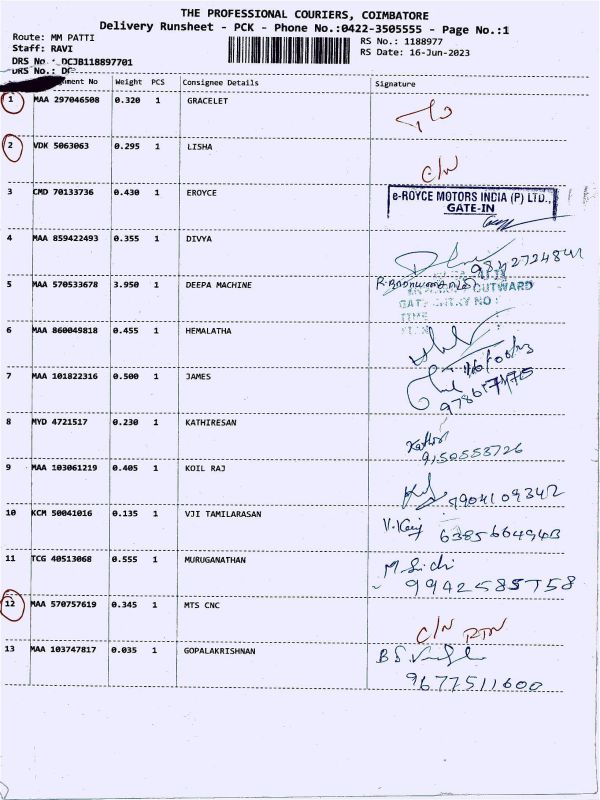 THE PROFESSIONAL COURIERS, COIMBATORE
Delivery Runsheet - PCK - Phone No.:0422-3505555 - Page No.:1
Route: MM PATTI
Staff: RAVI
RS No.: 1188977
RS Date: 16-Jun-2023
DRS No.: DCJB118897701
DRS No.: DC
No Weight PCS Consignee Details Signature
1 MAA 297046508 0.320 1 GRACELET
2 VDK 5063063 0.295 1 LISHA C/N
3 CMD 70133736 0.430 1 EROYCE
e-ROYCE MOTORS INDIA (P) LTD.,
GATE-IN
4 MAA 859422493 0.355 1 DIVYA
5 MAA 570533678 3.950 1 DEEPA MACHINE
OUTWARD
TIME
6 MAA 860049818 0.455 1 HEMALATHA
7 MAA 101822316 0.500 1 JAMES
8 MYD 4721517 0.230 1 KATHIRESAN
9150553726
9 MAA 103061219 0.405 1 KOIL RAJ
7904109342
10 KCM 50041016 0.135 1 VJI TAMILARASAN
11 TCG 40513068 0.555 1 MURUGANATHAN
9942585758
12 MAA 570757619 0.345 1 MTS CNC
C/N RTN
13 MAA 103747817 0.035 1 GOPALAKRISHNAN
9677511600